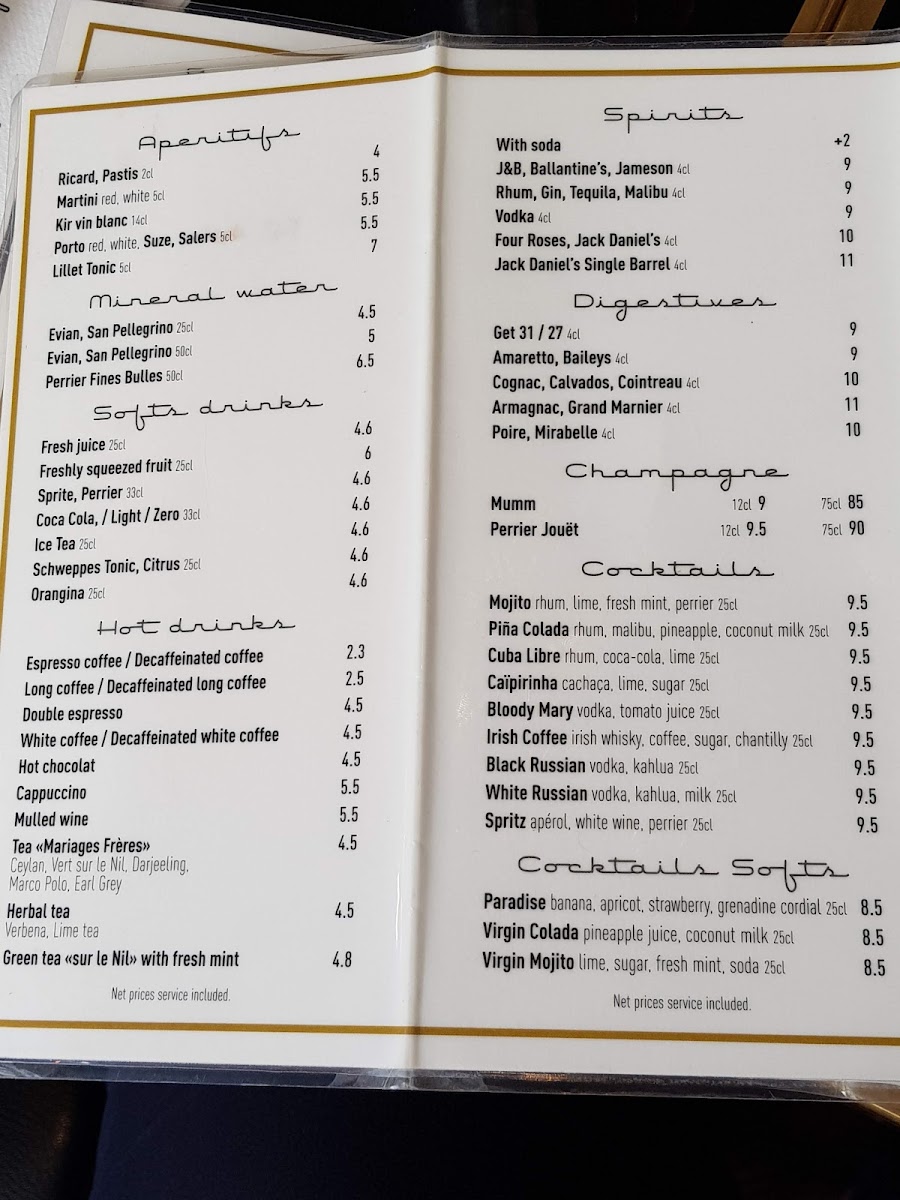 Aperitifs
Ricard, Pastis 2cl 4
Martini red, white 5cl 5.5
Kir vin blanc 14cl 5.5
Porto red, white, Suze, Salers 5cl 5.5
Lillet Tonic 5cl 7
Mineral water
Evian, San Pellegrino 25cl 4.5
Evian, San Pellegrino 50cl 5
Perrier Fines Bulles 50cl 6.5
Softs drinks
Fresh juice 25cl 4.6
Freshly squeezed fruit 25cl 6
Sprite, Perrier 33cl 4.6
Coca Cola, / Light / Zero 33cl 4.6
Ice Tea 25cl 4.6
Schweppes Tonic, Citrus 25cl 4.6
Orangina 25cl 4.6
Hot drinks
Espresso coffee / Decaffeinated coffee 2.3
Long coffee / Decaffeinated long coffee 2.5
Double espresso 4.5
White coffee / Decaffeinated white coffee 4.5
Hot chocolat 4.5
Cappuccino 5.5
Mulled wine 5.5
Tea «Mariages Frères» 4.5
Ceylan, Vert sur le Nil, Darjeeling,
Marco Polo, Earl Grey
Herbal tea 4.5
Verbena, Lime tea
Green tea «sur le Nil» with fresh mint 4.8
Net prices service included.
Spirits
With soda +2
J&B, Ballantine's, Jameson 4cl 9
Rhum, Gin, Tequila, Malibu 4cl 9
Vodka 4cl 9
Four Roses, Jack Daniel's 4cl 10
Jack Daniel's Single Barrel 4cl 11
Digestives
Get 31 / 27 4cl 9
Amaretto, Baileys 4cl 9
Cognac, Calvados, Cointreau 4cl 10
Armagnac, Grand Marnier 4cl 11
Poire, Mirabelle 4cl 10
Champagne
Mumm 12cl 9 75cl 85
Perrier Jouët 12cl 9.5 75cl 90
Cocktails
Mojito rhum, lime, fresh mint, perrier 25cl 9.5
Piña Colada rhum, malibu, pineapple, coconut milk 25cl 9.5
Cuba Libre rhum, coca-cola, lime 25cl 9.5
Caïpirinha cachaça, lime, sugar 25cl 9.5
Bloody Mary vodka, tomato juice 25cl 9.5
Irish Coffee irish whisky, coffee, sugar, chantilly 25cl 9.5
Black Russian vodka, kahlua 25cl 9.5
White Russian vodka, kahlua, milk 25cl 9.5
Spritz apérol, white wine, perrier 25cl 9.5
Cocktails Softs
Paradise banana, apricot, strawberry, grenadine cordial 25cl 8.5
Virgin Colada pineapple juice, coconut milk 25cl 8.5
Virgin Mojito lime, sugar, fresh mint, soda 25cl 8.5
Net prices service included.